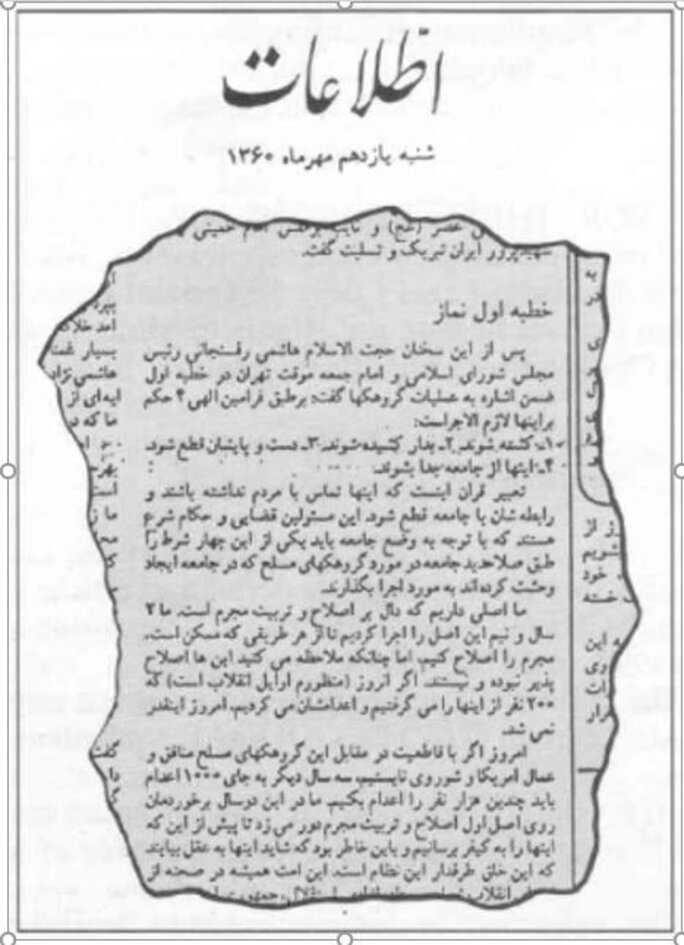 اطلاعات
شنبه یازدهم مهرماه ۱۳۶۰
عصر (عج) و نایب برحقش امام خمینی
شهیدپرور ایران تبریک و تسلیت گفت.
خطبه اول نماز
پس از این سخنان حجت الاسلام هاشمی رفسنجانی رئیس
مجلس شورای اسلامی و امام جمعه موقت تهران در خطبه اول
ضمن اشاره به عملیات گروهکها گفت: برطبق فرامین الهی ۴ حکم
براینها لازم الاجراست:
۱ـ کشته شوند ۲ـ بدار کشیده شوند ۳ـ دست و پایشان قطع شود.
۴ـ اینها از جامعه جدا بشوند.
تعبیر قران اینست که اینها تماس با مردم نداشته باشند و
رابطه شان با جامعه قطع شود. این مسئولین قضایی و حکام شرع
هستند که با توجه به وضع جامعه باید یکی از این چهار شرط را
طبق صلاحدید جامعه در مورد گروهکهای مسلح که در جامعه ایجاد
وحشت کرده‌اند به مورد اجرا بگذارند.
ما اصلی داریم که دال بر اصلاح و تربیت مجرم است. ما ۲
سال و نیم این اصل را اجرا کردیم تا از هر طریقی که ممکن است،
مجرم را اصلاح کنیم. اما چنانکه ملاحظه می کنید این ها اصلاح
پذیر نبوده و نیستند. اگر آنروز (منظورم اوایل انقلاب است) که
۲۰۰ نفر از اینها را می گرفتیم و اعدامشان می کردیم، امروز اینقدر
نمی شد.
امروز اگر با قاطعیت در مقابل این گروهکهای مسلح منافق و
عمال امریکا و شوروی نایستیم، سه سال دیگر به جای ۱۰۰۰ اعدام
باید چندین هزار نفر را اعدام بکنیم. ما در این دوسال برخوردمان
روی اصل اول اصلاح و تربیت مجرم دور می زد تا پیش از این که
اینها را به کیفر برسانیم و باین خاطر بود که شاید اینها به عقل بیایند
که این خلق طرفدار این نظام است. این امت همیشه در صحنه از
به
ز از
شویم
خود
خسته
ه این
وی
رات
رار
امد خلاکه
بسیار
هاشمی نژاد
ایه‌ای از
ما که در
است
ما ز
گفت